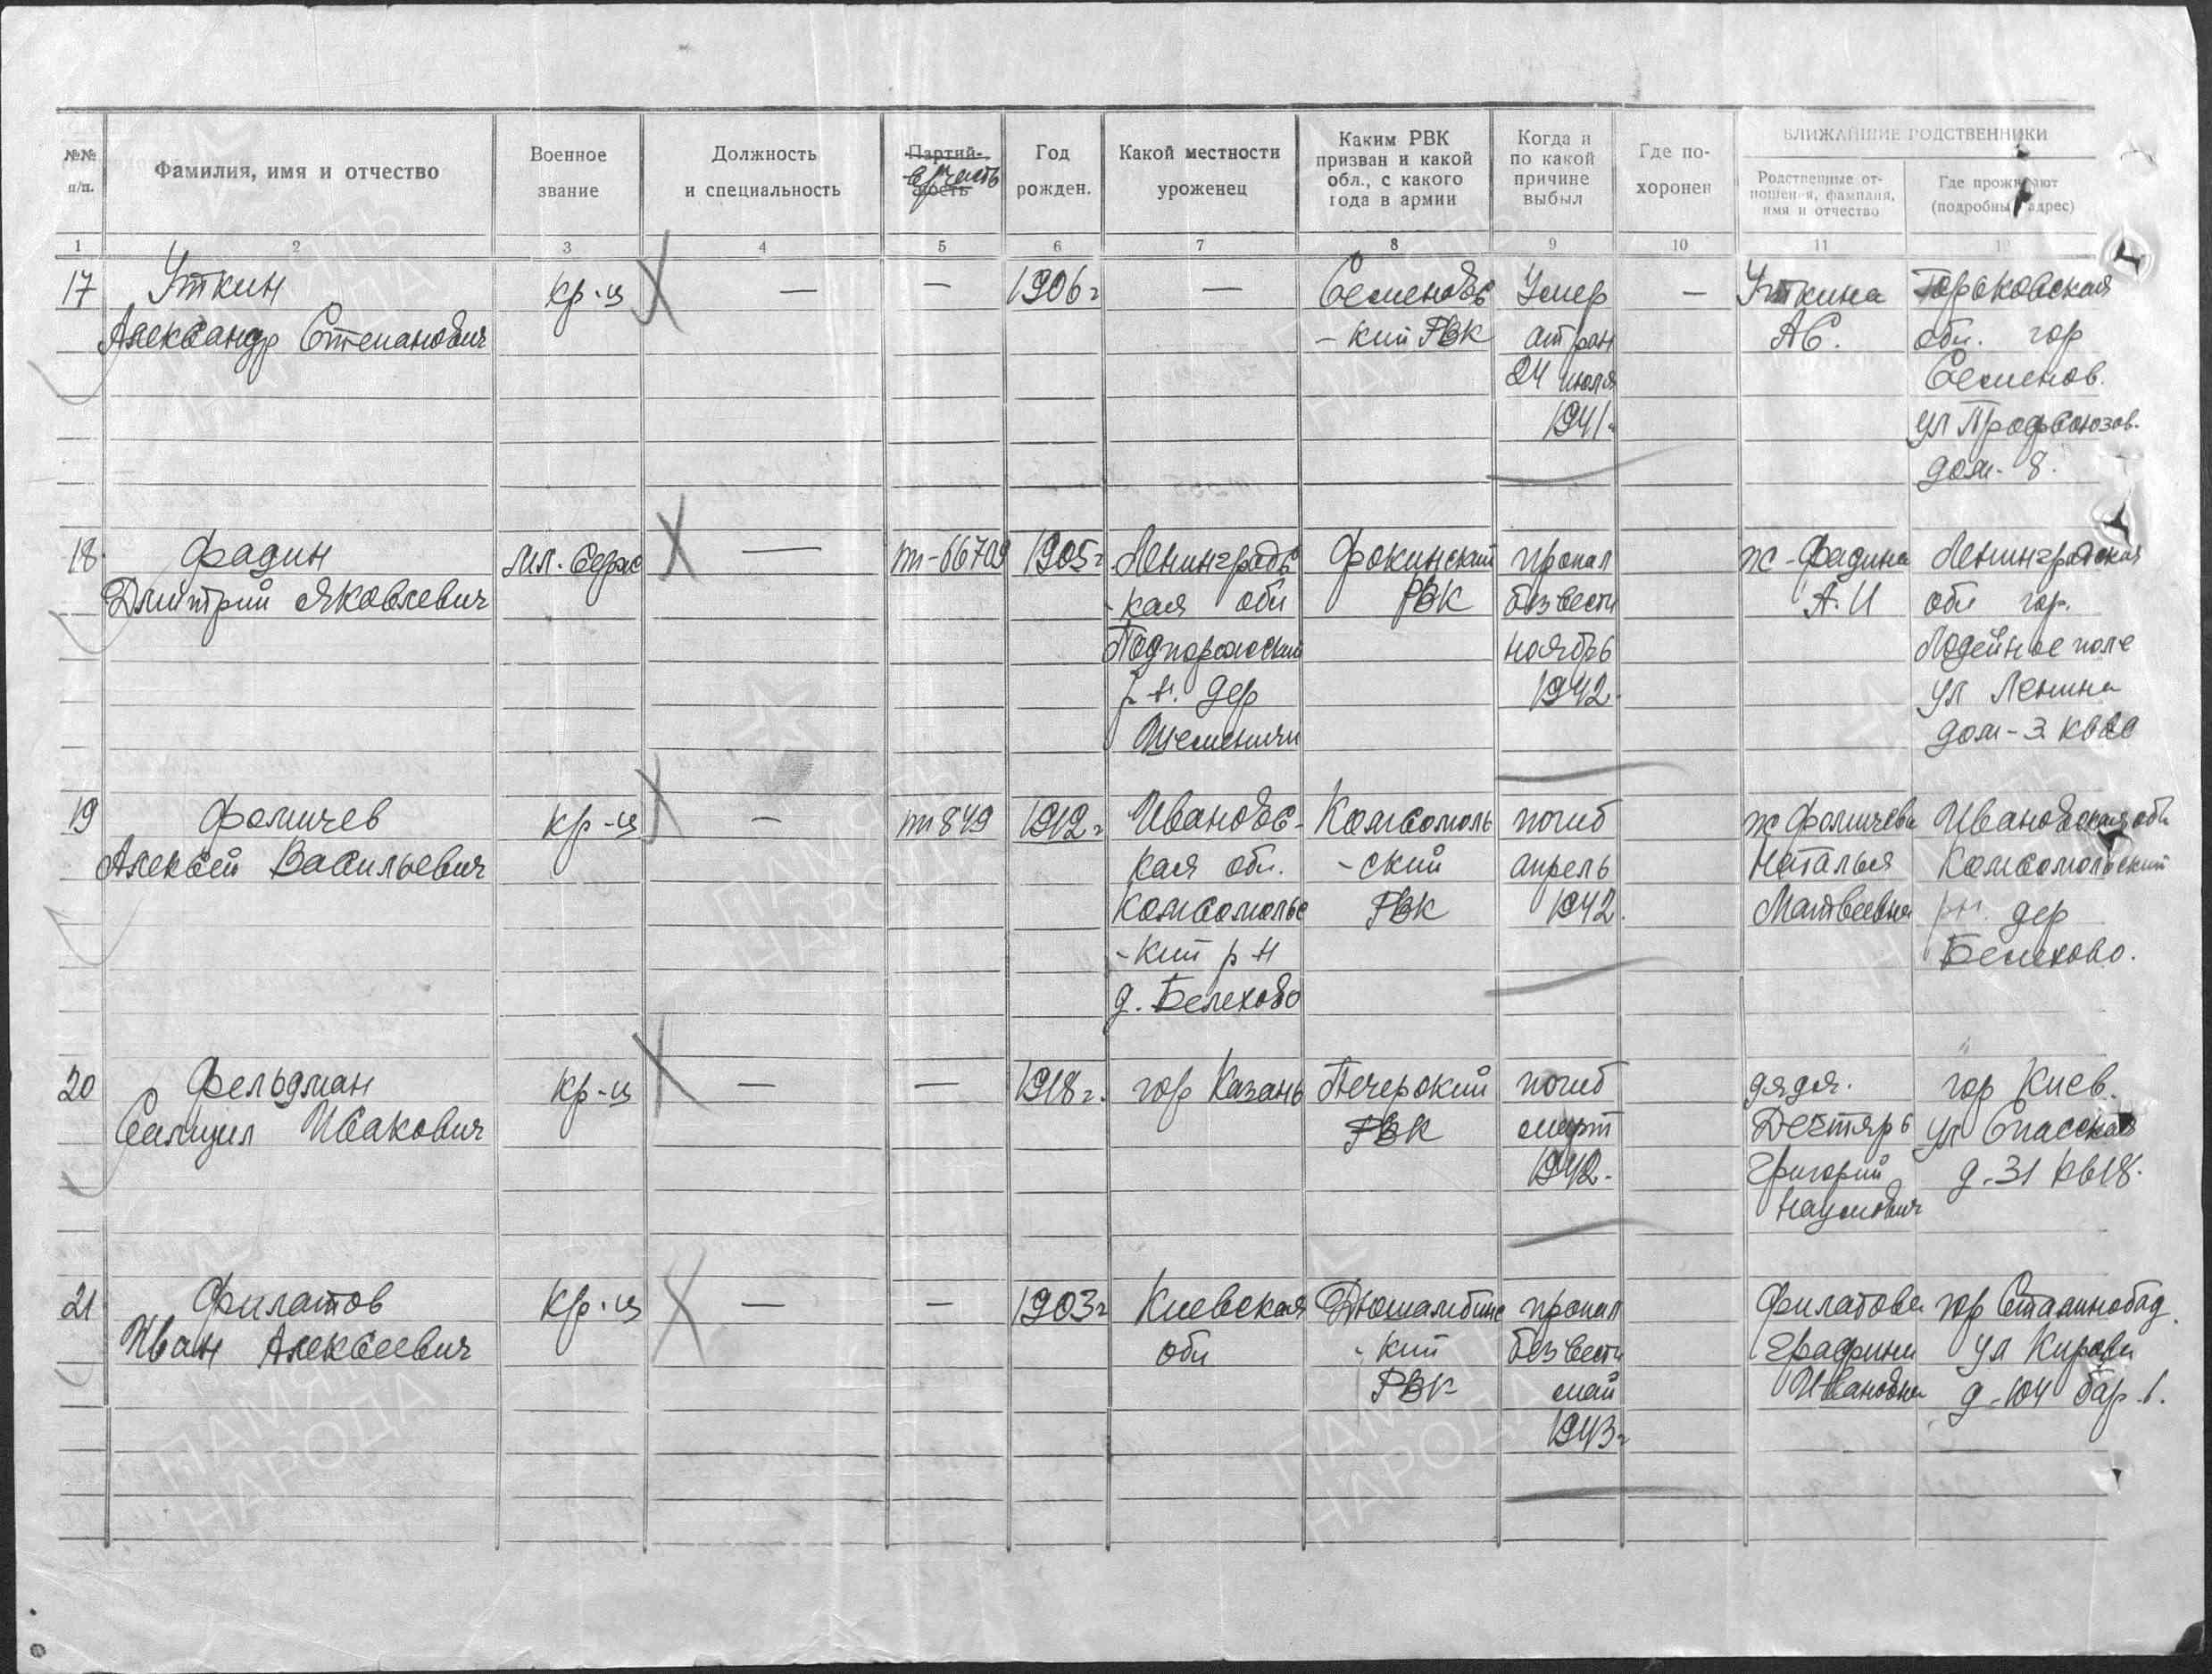 №№ п/п.
Фамилия, имя и отчество
Военное звание
Должность и специальность
Партий-
ность
в/часть
Год рожден.
Какой местности уроженец
Каким РВК призван и какой обл., с какого года в армии
Когда и по какой причине выбыл
Где похоронен
БЛИЖАЙШИЕ РОДСТВЕННИКИ
Родственные отношения, фамилия, имя и отчество
Где проживают (подробный адрес)
1 2 3 4 5 6 7 8 9 10 11 12
17 Уткин кр-ц — — 1906 г — Семеновс Умер — Уткина Горьковская
Александр Степанович - кий РВК от ран А С. обл. гор
24 июля Семенов.
1941г ул Профсоюзов.
дом - 8.
18 Фадин мл. серж — пп-66709 1905 г Ленинградс Фокинский пропал ж - Фадина Ленинградская
Дмитрий Яковлевич - кая обл РВК без вести А. И обл гор.
Подпорожский ноябрь Лодейное поле
р-н. дер 1942. ул Ленина
дом - 3
19 Фомичев кр-ц — пп 849 1912 г Ивановс- Комсомоль погиб ж Фомичева Ивановская обл
Алексей Васильевич кая обл. - ский апрель Наталья Комсомольский
Комсомольс РВК 1942. Матвеевна рн. дер
- кий р-н Белехово.
д. Белехово
20 Фельдман кр-ц — — 1918 г. гор Казань Печерский погиб дядя. гор Киев.
Самуил Исакович РВК март Дехтярь ул Спасская
1942. Григорий д. 31 кв 18.
Наумович
21 Филатов кр-ц — — 1903 г Киевская Дюшамбинс пропал Филатова гор Сталинобад.
Иван Алексеевич обл - кий без вести ул Кирова
РВК май Ивановна д. 104 бар. 1.
1943 г
ПАМЯТЬ НАРОДА